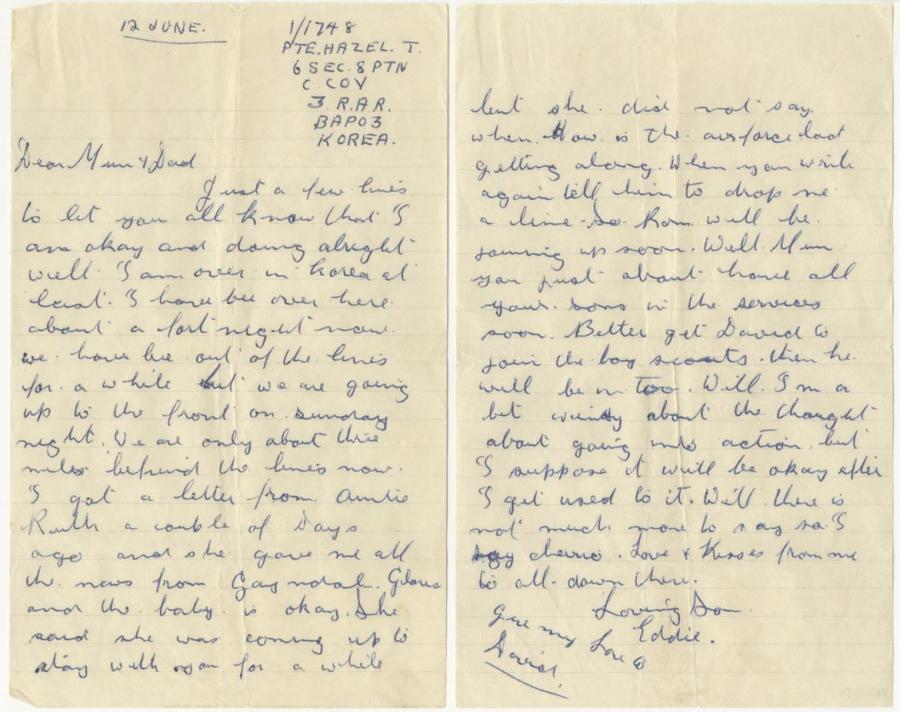 12 JUNE.
1/1748
PTE. HAZEL. T.
6 SEC. 8 PTN
C COY
3 R.A.R.
BAPO3
KOREA.
Dear Mum & Dad
Just a few lines
to let you all know that I
am okay and doing alright
well. I am over in Korea at
last. I have bee over here
about a fortnight now.
we have bee out of the lines
for a while but we are going
up to the front on sunday
night. We are only about three
miles behind the lines now.
I got a letter from Auntie
Ruth a couble of Days
ago and she gave me all
the news from Gayndah. Gloria
and the baby is okay. She
said she was coming up to
stay with you for a while
but she did not say
when. How is the airforce lad
getting along. When you write
again tell him to drop me
a line. So Ron will be
joining up soon. Well Mum
you just about have all
your sons in the services
soon. Better get David to
join the boy scouts. then he
will be in too. Well. I'm a
bit windy about the thought
about going into action but
I suppose it will be okay after
I get used to it. Well there is
not much more to say so I
say cheerio. Love & Kisses from me
to all down there.
Loving Son
Eddie.
Give my Love to
David.